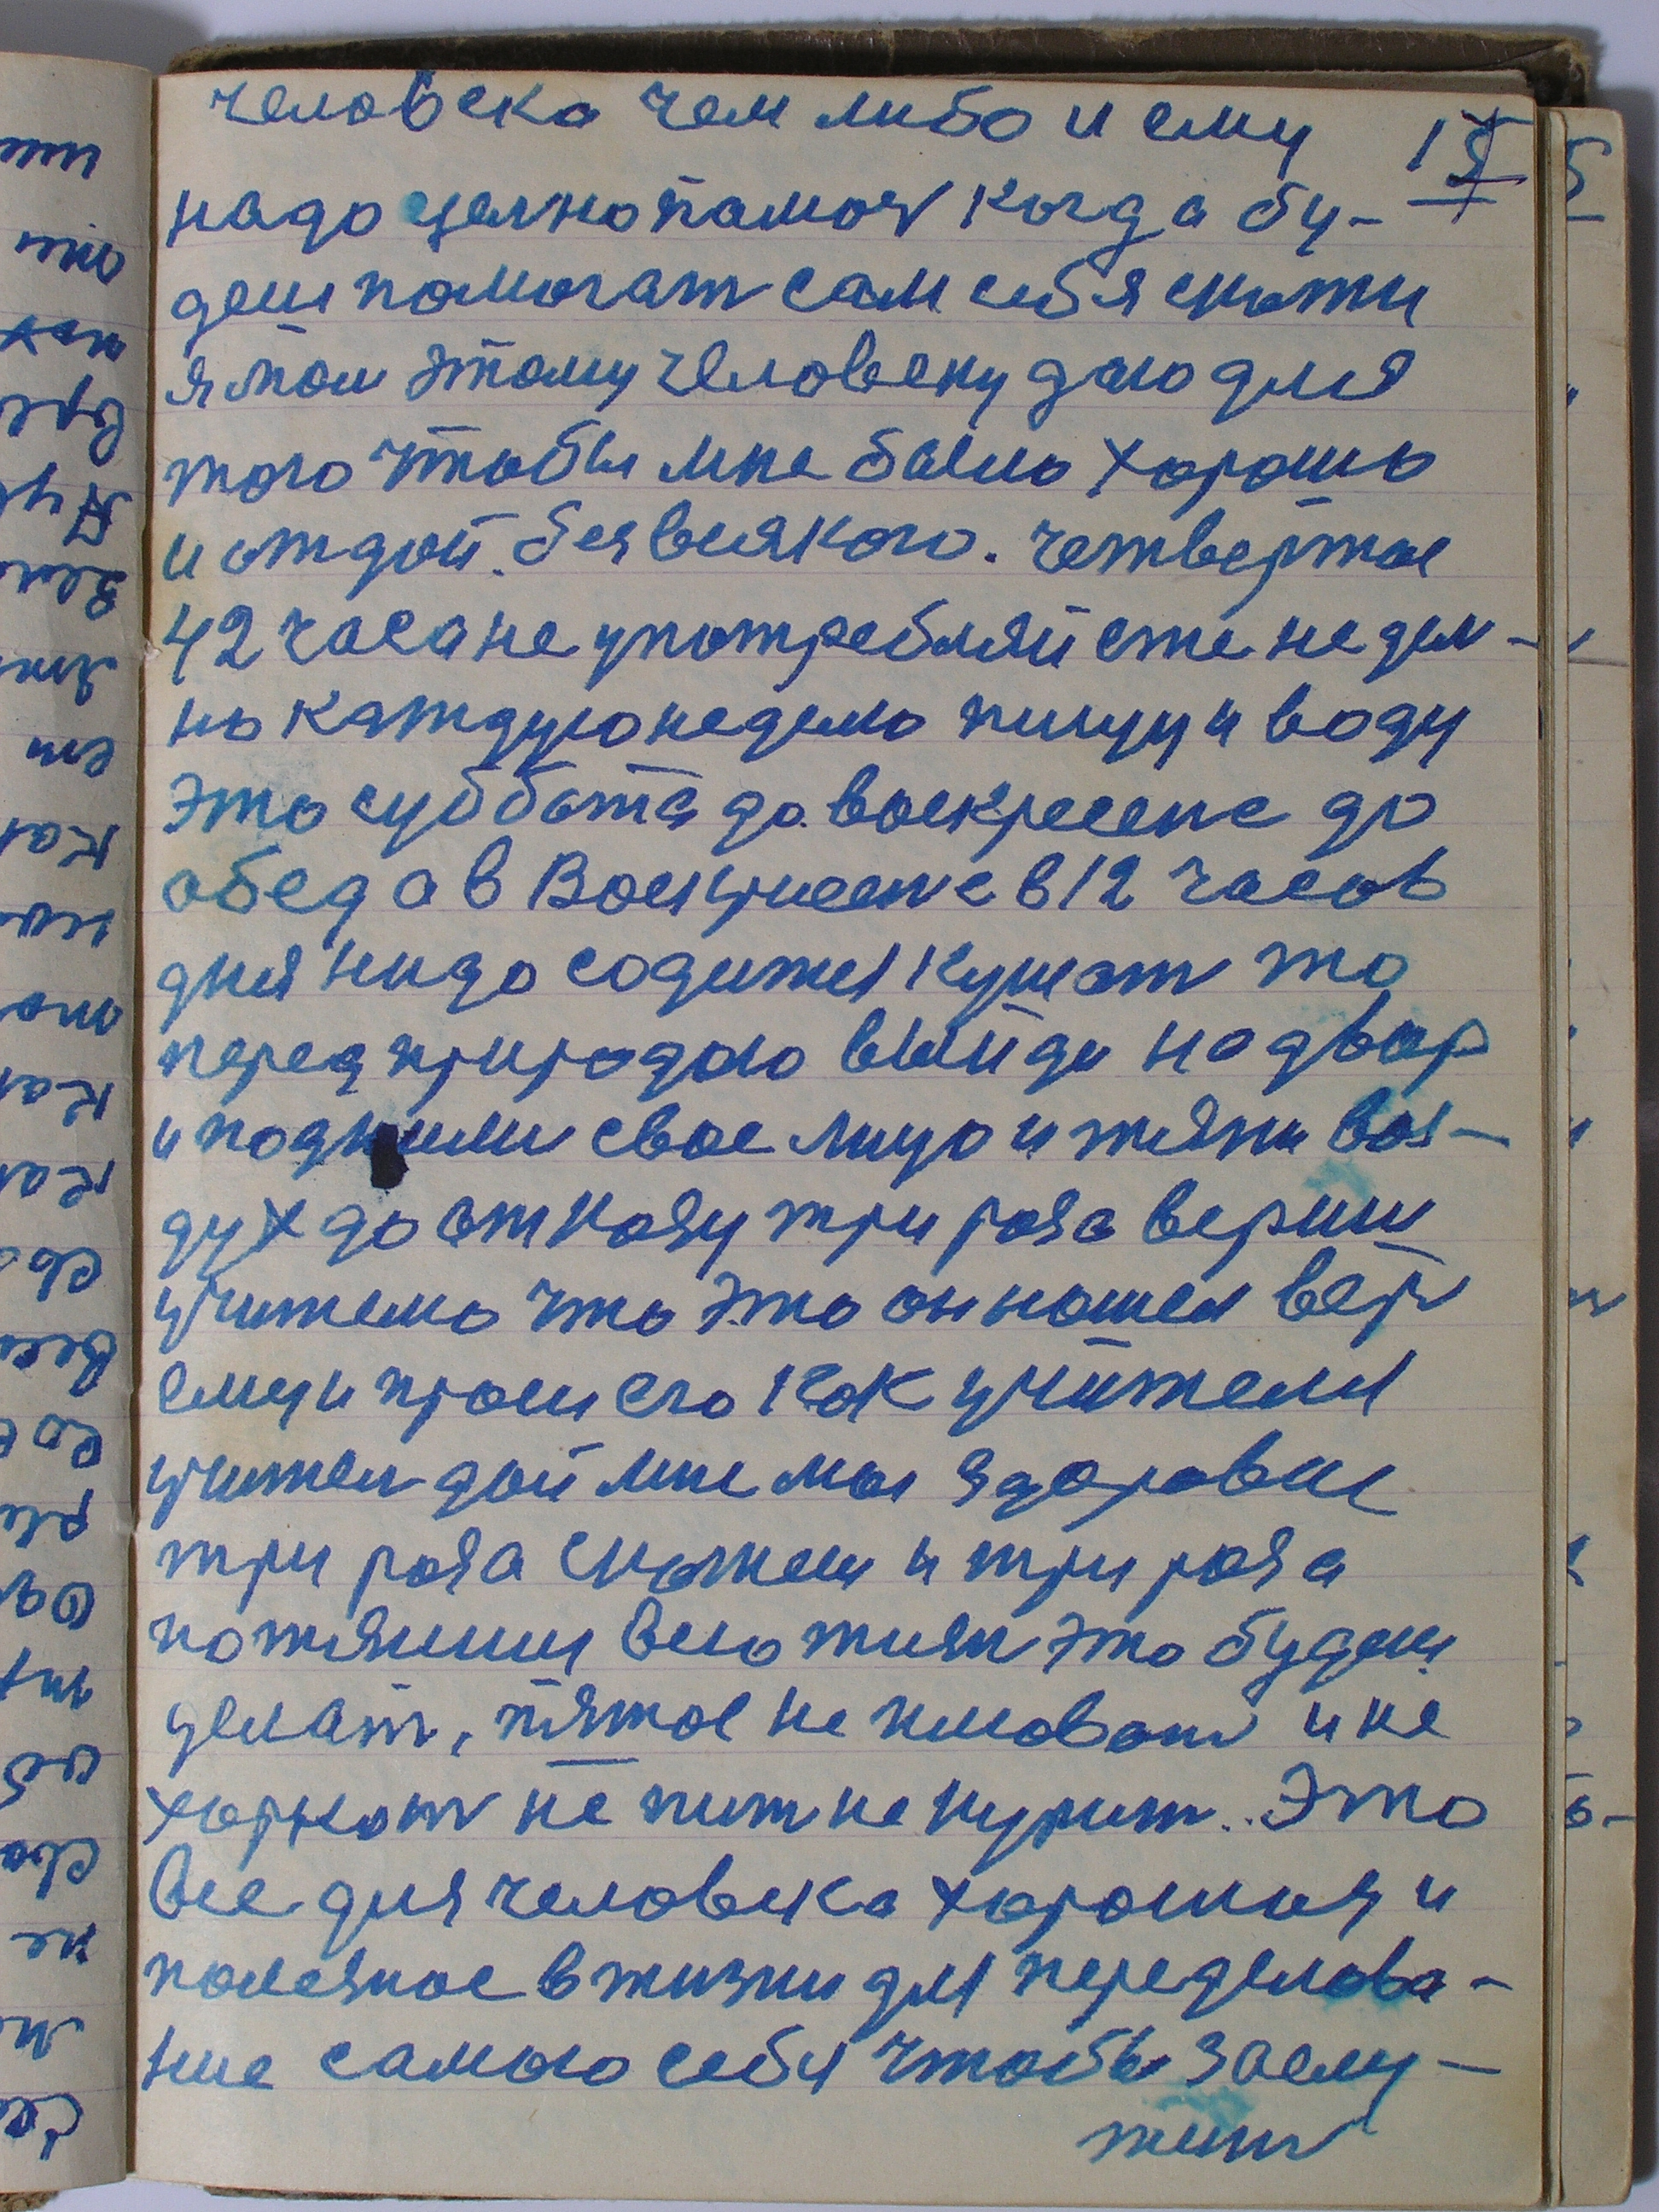 человека чем либо и ему 15
надо целно памоч когда бу-
деш помогат сам себя скажи
я мол этому человеку даю для
того чтобы мне было хорошо
и отдай. без всякого. четвертое
42 часа не употребляйсте не дел-
но каждую неделю пищу и воду
это суббота до воскресене до
обеда в Воскресене в 12 часов
дня надо садится кушат то
перед природаю выйди на двор
и подними свое лицо и тяни воз-
дух до отказу три раза вериш
учителю что это он нашел верь
ему и проси его как учителя
учитель дай мне мое здоровие
три раза скажеш и три раза
потянеш всю жизн это будеш
делат, пятое не плюват и не
харкат не пит не курит.. Это
все для человека хорошия и
полезное в жизни для переделова-
ние самого себя чтобы заслу-
жит